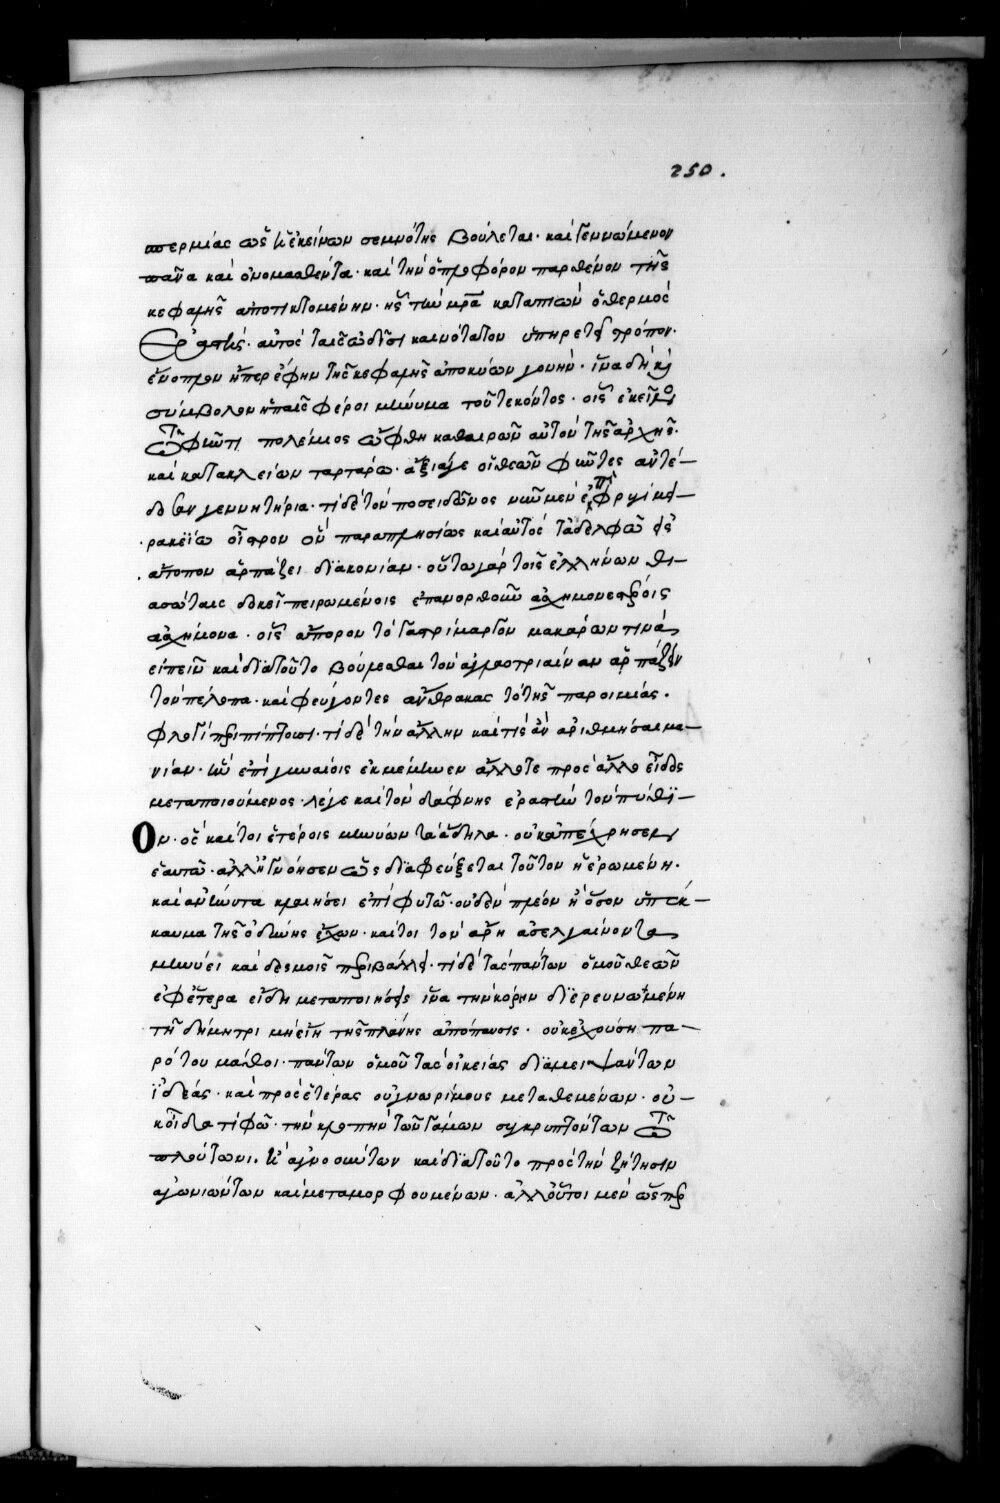 250.
σπερμίας ὡς ἡ ἐκείνων σεμνότης βούλεται· καὶ γεννώμενον
πᾶνα καὶ ὀνομασθέντα· καὶ τὴν ὁπλοφόρον παρθένον τῆς
κεφαλῆς ἀποτικτομένην· ἧς τὴν μρα καταπιὼν ὁ θερμὸς
ἐραστής· αὐτὸς ταῖς ὠδῖσι καινότατον ὑπηρετεῖ τρόπον·
ἔνοπλον ἥπερ ἔφην τῆς κεφαλῆς ἀποκύων γονήν· ἵνα δὴ καὶ
σύμβολον ἡ παῖς φέροι μήνυμα τοῦ τεκόντος· οἷς ἐκεῖνος
τῶ φύντι πολέμιος ὤφθη καθαιρῶν αὐτὸν τῆς ἀρχῆς·
καὶ κατακλείων ταρτάρω· ἄξια γε οἱ θεῶν φῦντες ἀντέ-
δοσαν γεννητήρια· τί δὲ τὸν ποσειδῶνος νῦν μὲν ἐπὶ φρυγὶ μει-
ρακείω οἶστρον ὃν παραπλησίως καὶ αὐτὸς τἀδελφῶ εἰς
ἄτοπον ἁρπάζει διακονίαν· οὕτω γὰρ τοῖς ἑλλήνων θι-
ασώταις δοκεῖ πειρωμένοις ἐπανορθοῦν ἀσχημονεστέροις
ἀσχήμονα· οἷς ἄπορον τὸ γαστρίμαργον μακάρων τινὰ
εἰπεῖν καὶ διὰ τοῦτο βούλεσθαι τὸν ἀγλαοτρίαιναν ἁρπάζειν
τὸν πέλοπα· καὶ φεύγοντες ἄνθρακας τὸ τῆς παροιμίας·
φλογὶ περιπίπτουσι· τί δὲ τὴν ἄλλην καὶ τίς ἂν ἀριθμήσαι μα-
νίαν· ἣν ἐπὶ γυναίοις ἐκμέμηνεν ἄλλοτε πρὸς ἄλλο εἶδος
μεταποιούμενος· λέγε καὶ τὸν δάφνης ἐραστὴν τὸν πύθι-
Ον· ὃς καίτοι ἑτέροις μηνύων τὰ ἄδηλα· οὐκ ἀπέχρησεν
ἑαυτῶ· ἀλλ' ἠγνόησεν ὡς διαφεύξεται τοῦτον ἡ ἐρωμένη·
καὶ ἀνύοντα κλαιήσει ἐπὶ φυτῶ· οὐδὲν πλέον ἢ ὅσον ὑπέκ-
καυμα τῆς ὀδύνης ἔχων· καίτοι τὸν ἄρη ἀσελγαίνοντα
μηνύει καὶ δεσμοῖς περιβάλλει· τί δὲ τὰς πάντων ὁμοῦ θεῶν
ἐφ' ἕτερα εἴδη μεταποιήσεις ἵνα τὴν κόρην διερευνωμένη
τῆ δήμητρι μὴ εἴη τῆς πλάνης ἀπόπαυσις· οὐκ ἐχούση πα-
ρ' ὅτου μάθοι· πάντων ὁμοῦ τὰς οἰκείας διαμειψάντων
ἰδέας· καὶ πρὸς ἑτέρας οὐ γνωρίμους μεταθεμένων· οὐ-
κ οἶδα τί φῶ· τὴν κλοπὴν τῶν γάμων συγκρυπτόντων τῶ
πλούτωνι. ἢ ἀγνοούντων καὶ διὰ τοῦτο πρὸς τὴν ζήτησιν
ἀγωνιώντων καὶ μεταμορφουμένων· ἀλλ' οὗτοι μὲν ὥσπερ